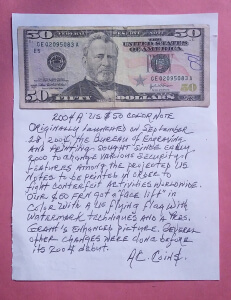 50
GE 02095083 A
E5
GE 02095083 A
50
FIFTY DOLLARS
50
2004 A US $50 COLOR NOTE
ORIGINALLY LAUNCHED ON SEPTEMBER
28, THE BUREAU OF ENGRAVING
AND PRINTING SOUGHT SINCE EARLY
2000 TO CHANGE VARIOUS SECURITY
FEATURES AMONG THE PROJECTED US
NOTES TO BE PRINTED IN ORDER TO
FIGHT CONTERFEIT ACTIVITIES WORLDWIDE.
OUR $50 FRN GOT A FACE LIFT
COLOR WITH A US FLYING FLAG WITH
WATERMARK TECHNIQUES AND
GRANT'S ENHANCED PICTURE. SEVERAL
OTHER CHANGES WERE DONE BEFORE
ITS 2004 DEBUT.
COINS